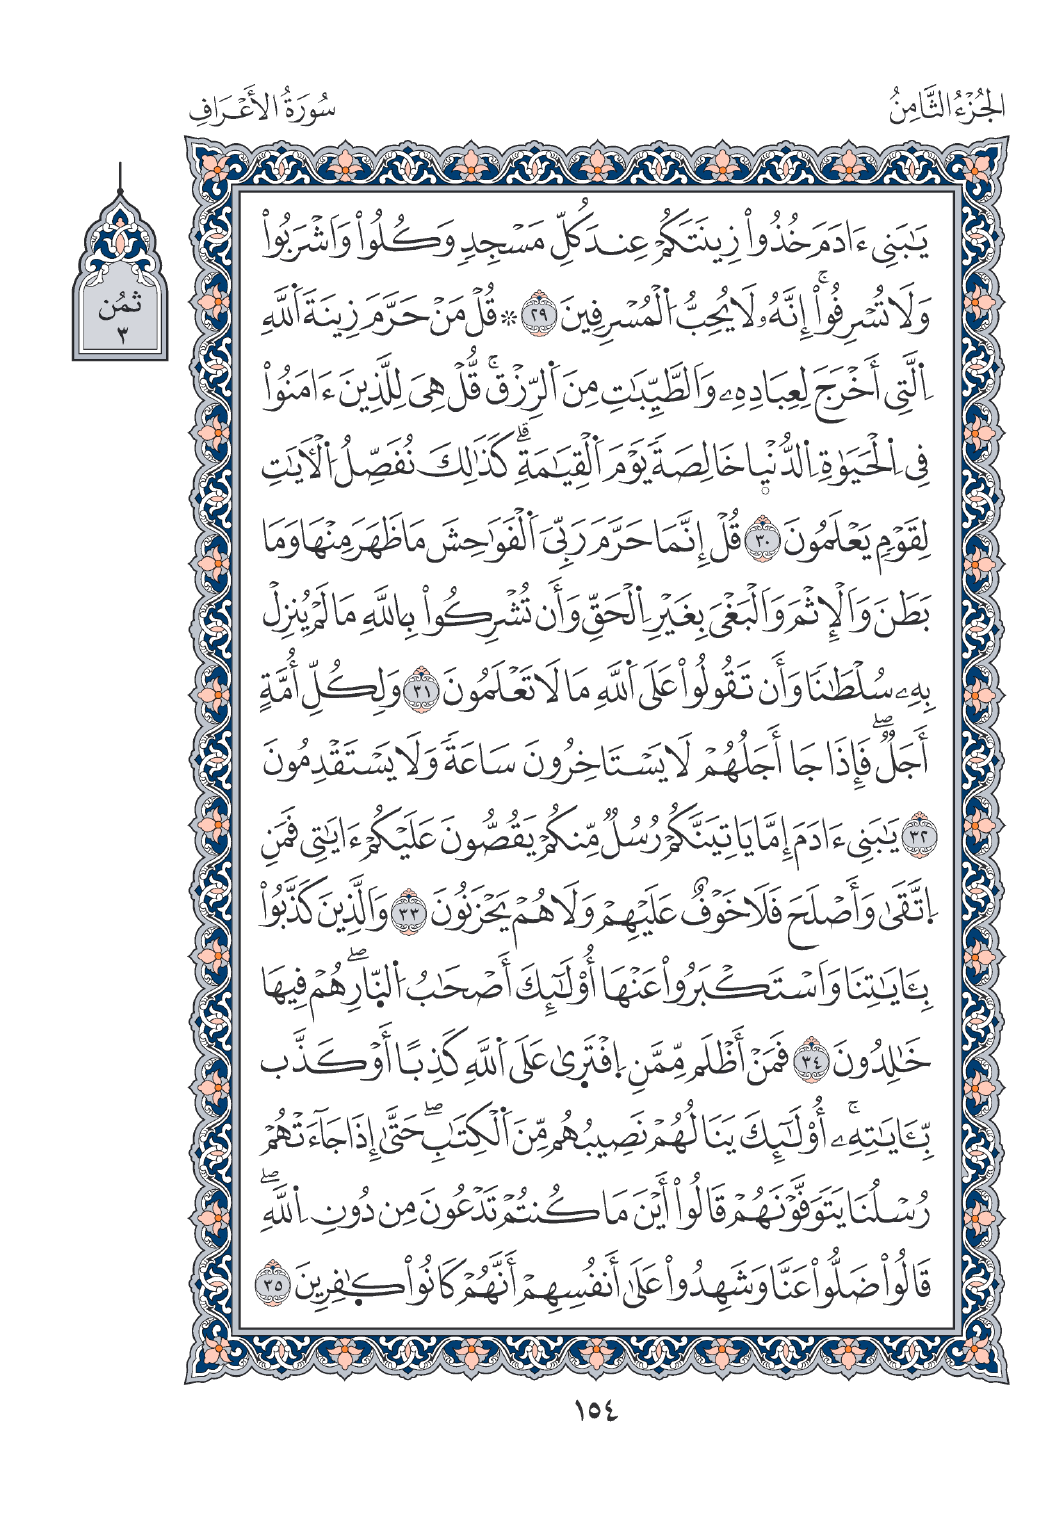 الجُزْءُ الثَّامِنُ
سُورَةُ الأَعْرَافِ
ثمُن
٣
يَٰبَنِى ءَادَمَ خُذُواْ زِينَتَكُمْ عِندَ كُلِّ مَسْجِدٍ وَكُلُواْ وَاشْرَبُواْ
وَلَا تُسْرِفُواْۚ إِنَّهُۥ لَا يُحِبُّ اُ۬لْمُسْرِفِينَ ٢٩ ۞ قُلْ مَنْ حَرَّمَ زِينَةَ اَ۬للَّهِ
اِ۬لَّتِى أَخْرَجَ لِعِبَادِهِۦ وَالطَّيِّبَٰتِ مِنَ اَ۬لرِّزْقِۚ قُل هِىَ لِلَّذِينَ ءَامَنُواْ
فِى اِ۬لْحَيَوٰةِ اِ۬لدُّنْيا خَالِصَةً يَوْمَ اَ۬لْقِيَٰمَةِۗ كَذَٰلِكَ نُفَصِّلُ اُ۬لْأٓيَٰتِ
لِقَوْمٍ يَعْلَمُونَ ٣٠ قُلْ إِنَّمَا حَرَّمَ رَبِّىَ اَ۬لْفَوَٰحِشَ مَا ظَهَرَ مِنْهَا وَمَا
بَطَنَ وَالْإِثْمَ وَالْبَغْىَ بِغَيْرِ اِ۬لْحَقِّ وَأَن تُشْرِكُواْ بِاللَّهِ مَا لَمْ يُنزِلْ
بِهِۦ سُلْطَٰنًا وَأَن تَقُولُواْ عَلَى اَ۬للَّهِ مَا لَا تَعْلَمُونَ ٣١ وَلِكُلِّ أُمَّةٍ
أَجَلٌۖ فَإِذَا جَا أَجَلُهُمْ لَا يَسْتَاخِرُونَ سَاعَةً وَلَا يَسْتَقْدِمُونَ
٣٢ يَٰبَنِى ءَادَمَ إِمَّا يَاتِيَنَّكُمْ رُسُلٌ مِّنكُمْ يَقُصُّونَ عَلَيْكُمْ ءَايَٰتِى فَمَنِ
اِ۪تَّقَىٰ وَأَصْلَحَ فَلَا خَوْفٌ عَلَيْهِمْ وَلَا هُمْ يَحْزَنُونَ ٣٣ وَالَّذِينَ كَذَّبُواْ
بِـَٔايَٰتِنَا وَاسْتَكْبَرُواْ عَنْهَا أُوْلَٰٓئِكَ أَصْحَٰبُ اُ۬لنّ۪ارِۖ هُمْ فِيهَا
خَٰلِدُونَ ٣٤ فَمَنْ أَظْلَم مِّمَّنِ اِ۪فْتَر۪ىٰ عَلَى اَ۬للَّهِ كَذِبًا أَوْ كَذَّب
بِّـَٔايَٰتِهِۦٓۚ أُوْلَٰٓئِكَ يَنَالُهُمْ نَصِيبُهُم مِّنَ اَ۬لْكِتَٰبِۖ حَتَّىٰ إِذَا جَآءَتْهُمْ
رُسْلُنَا يَتَوَفَّوْنَهُمْ قَالُواْ أَيْنَ مَا كُنتُمْ تَدْعُونَ مِن دُونِ اِ۬للَّهِۖ
قَالُواْ ضَلُّواْ عَنَّا وَشَهِدُواْ عَلَىٰ أَنفُسِهِمْ أَنَّهُمْ كَانُواْ كَٰفِرِينَ ٣٥
١٥٤